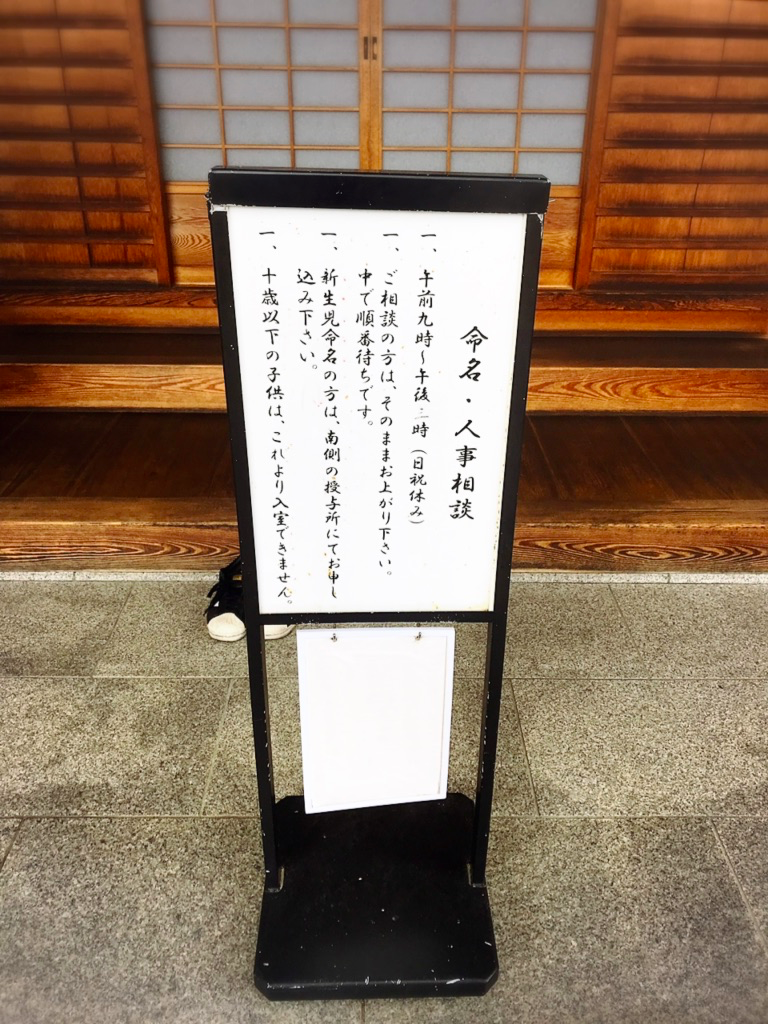 命名・人事相談
一、午前九時～午後三時（日祝休み）
一、ご相談の方は、そのままお上がり下さい。
中で順番待ちです。
一、新生児命名の方は、南側の授与所にてお申し
込み下さい。
一、十歳以下の子供は、これより入室できません。